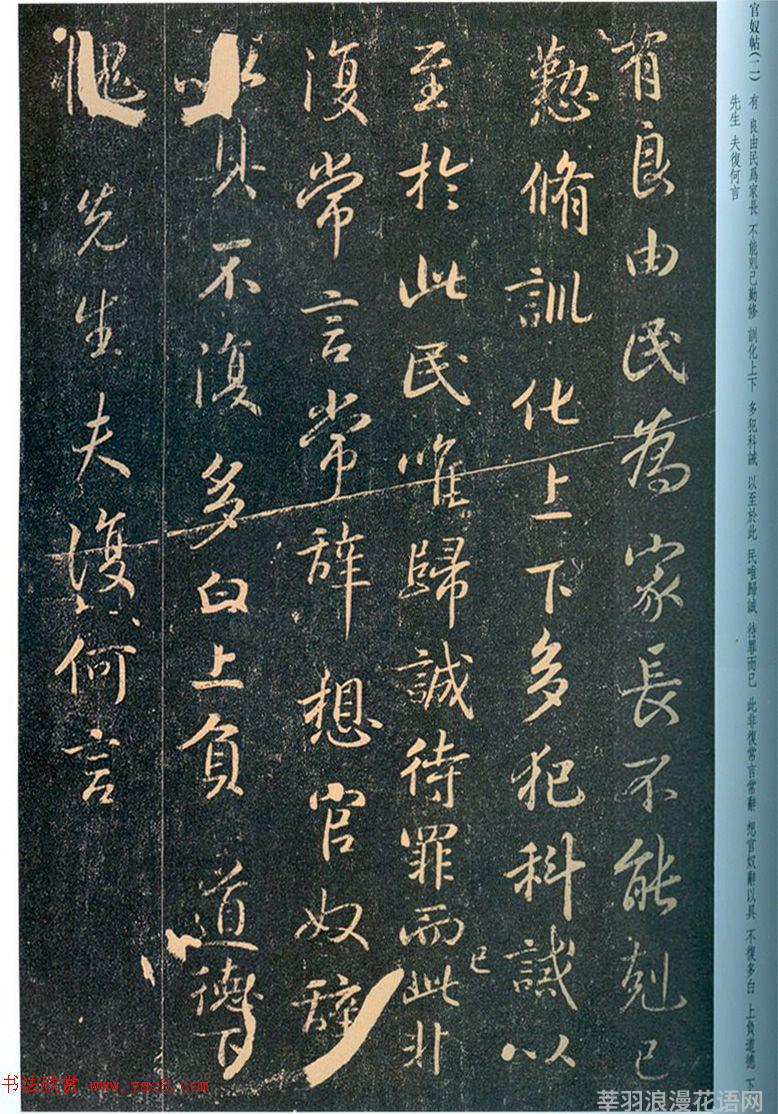 官奴帖(二)
有 良由民爲家長 不能剋己勤修 訓化上下 多犯科誡 以至於此 民唯歸誠 待罪而已 此非復常言常辭 想官奴辭以具 不復多白 上負道德 下
先生 夫復何言
有良由民為家長不能剋己
懃脩訓化上下多犯科誡以
至於此民唯歸誠待罪而已此非
復常言常辞想官奴辞
以具不復多白上負道德下
愧先生夫復何言
书法欣赏 www.yac8.com
莘羽浪漫花语网